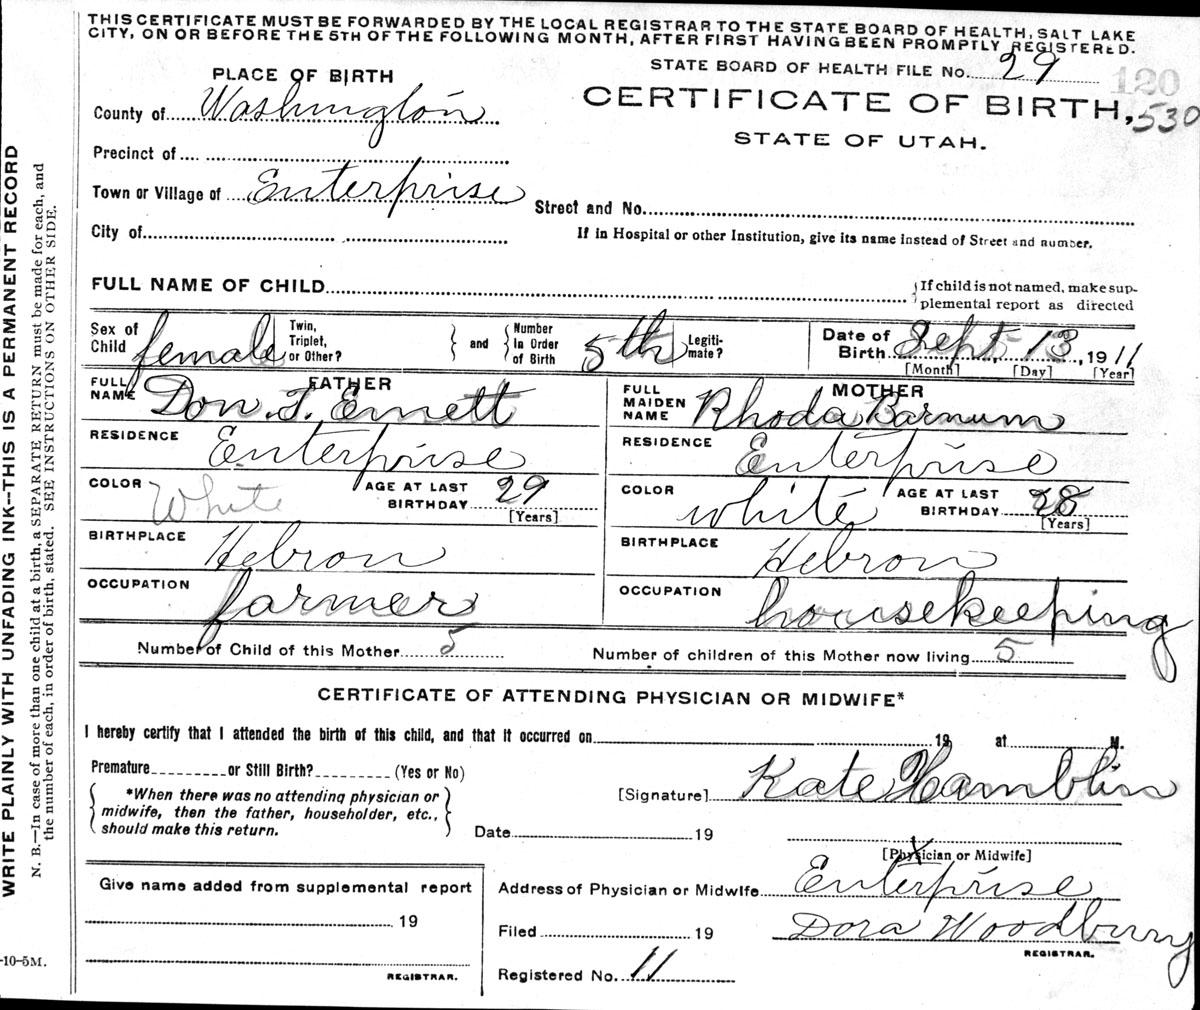 THIS CERTIFICATE MUST BE FORWARDED BY THE LOCAL REGISTRAR TO THE STATE BOARD OF HEALTH, SALT LAKE
CITY, ON OR BEFORE THE 5TH OF THE FOLLOWING MONTH, AFTER FIRST HAVING BEEN PROMPTLY REGISTERED.
STATE BOARD OF HEALTH FILE No. 29
120
PLACE OF BIRTH
CERTIFICATE OF BIRTH, 530
County of Washington
STATE OF UTAH.
Precinct of
Town or Village of Enterprise
Street and No.
City of
If in Hospital or other Institution, give its name instead of Street and number.
FULL NAME OF CHILD
If child is not named, make sup-
plemental report as directed
Sex of Child female
Twin, Triplet, or Other?
and
Number In Order of Birth 5th
Legiti-mate?
Date of Birth Sept, 13, 1911
[Month] [Day] [Year]
FATHER
FULL NAME Don. T. Emett
MOTHER
FULL MAIDEN NAME Rhoda Barnum
RESIDENCE Enterprise
RESIDENCE Enterprise
COLOR White AGE AT LAST BIRTHDAY 29 [Years]
COLOR white AGE AT LAST BIRTHDAY 28 [Years]
BIRTHPLACE Hebron
BIRTHPLACE Hebron
OCCUPATION farmer
OCCUPATION housekeeping
Number of Child of this Mother 5
Number of children of this Mother now living 5
CERTIFICATE OF ATTENDING PHYSICIAN OR MIDWIFE*
I hereby certify that I attended the birth of this child, and that it occurred on 19 at M.
Premature or Still Birth? (Yes or No)
*When there was no attending physician or
midwife, then the father, householder, etc.,
should make this return.
[Signature] Kate Hamblin
Date 19
[Physician or Midwife]
Give name added from supplemental report
19
REGISTRAR.
Address of Physician or Midwife Enterprise
Filed 19 Dora Woodbury
REGISTRAR.
Registered No. 11
WRITE PLAINLY WITH UNFADING INK--THIS IS A PERMANENT RECORD
N. B.—In case of more than one child at a birth, a SEPARATE RETURN must be made for each, and
the number of each, in order of birth, stated. SEE INSTRUCTIONS ON OTHER SIDE.
-10-5M.